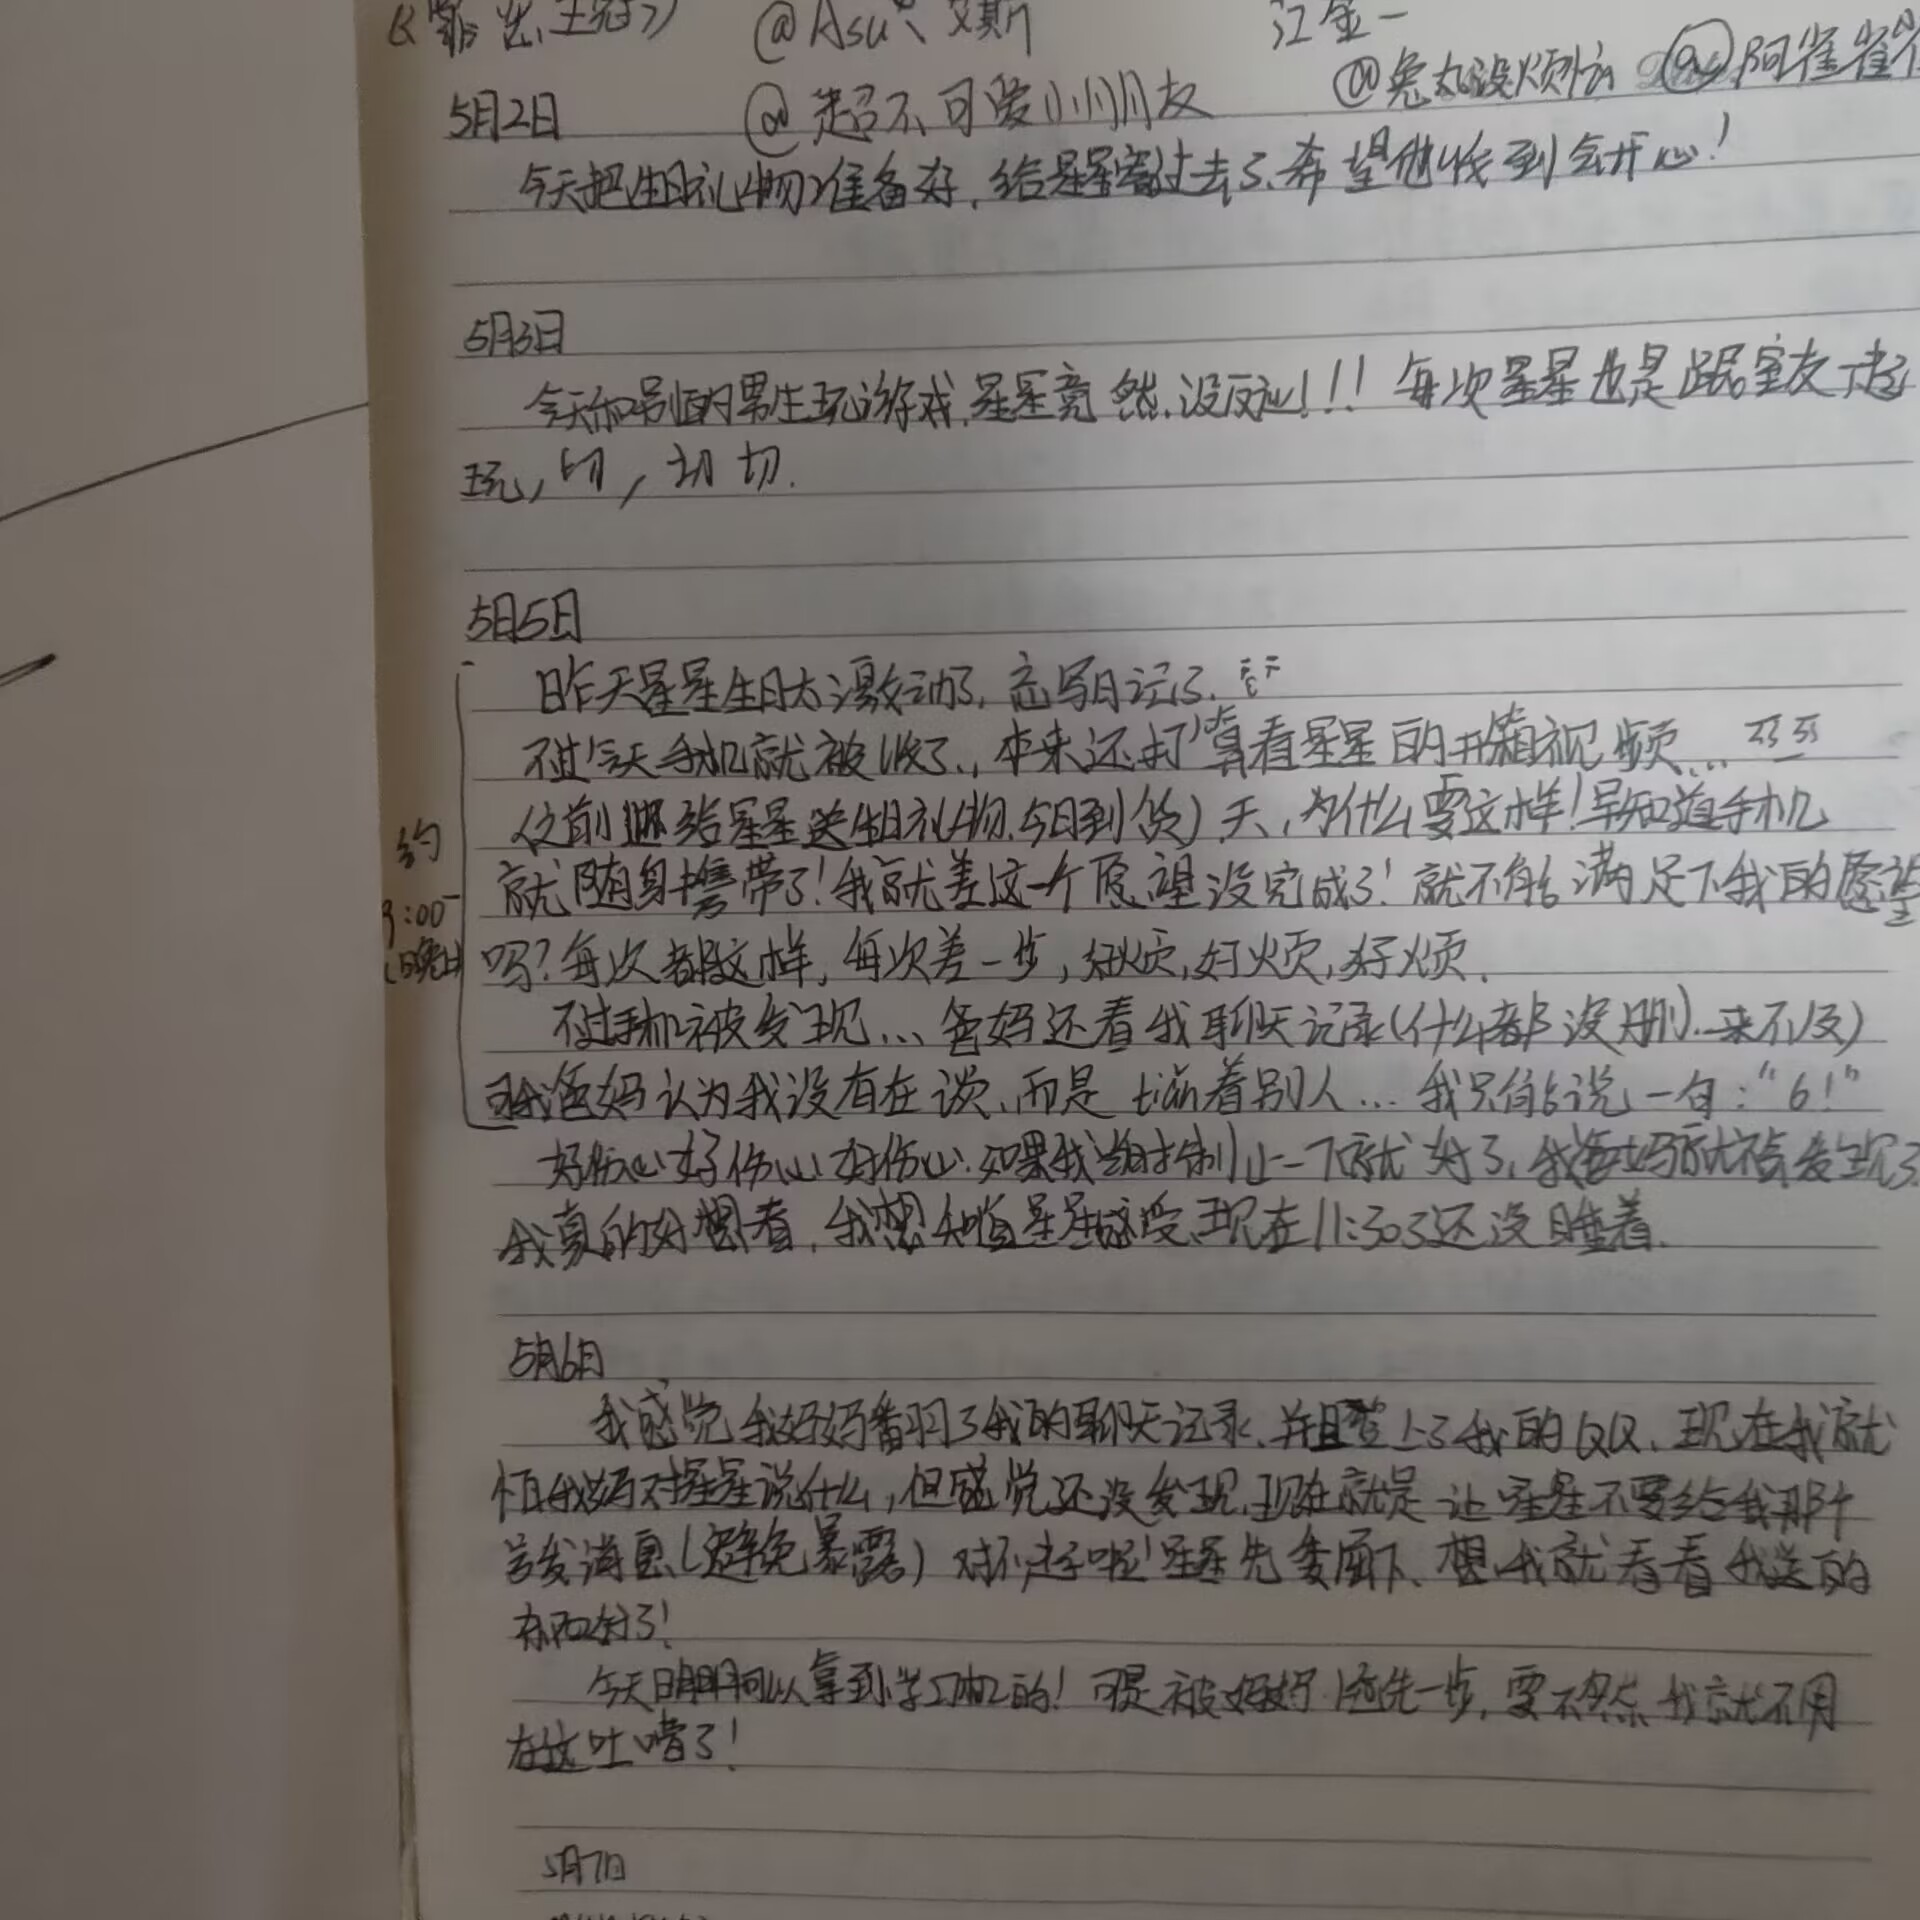 @Asu、艾斯 江奎一
@兔丸没烦恼 @阿雀雀
5月2日 @超不可爱小朋友
今天把生日礼物准备好,给星星寄过去了、希望他收到会开心!
5月3日
今天和别的男生玩游戏,星星竟然没反应!!!每次星星也是跟室友一起
玩,切,切切.
5月5日
昨天星星生日太激动了,忘写日记了.
不过今天手机就被收了.,本来还打算看星星的开箱视频...
(之前 给星星送生日礼物.今日到货)天,为什么要这样!早知道手机
就随身携带了!我就差这一个愿望没完成了!就不能满足下我的愿望
吗?每次都这样,每次差一步,好烦,好烦,好烦.
约
9:00
(晚上)
不过手机被发现...爸妈还看我聊天记录(什么都没删.来不及)
我爸妈认为我没有在谈、而是 着别人...我只能说一句:“6!”
好伤心好伤心好伤心.如果我当时制止一下就好了,我爸妈就不会发现了.
我真的好想看,我想知道星星感受、现在11:30了还没睡着.
5月6日
我感觉我妈妈翻了我的聊天记录、并且登上了我的QQ、现在我就
怕我妈对星星说什么,但感觉还没发现、现在就是让星星不要给我那个
号发消息(避免暴露)对不起啦!星星先委屈下、想我就看看我送的
东西好了!
今天明明可以拿到学习机的!可是被妈妈抢先一步,要不然我就不用
在这吐嘈了!
5月7日